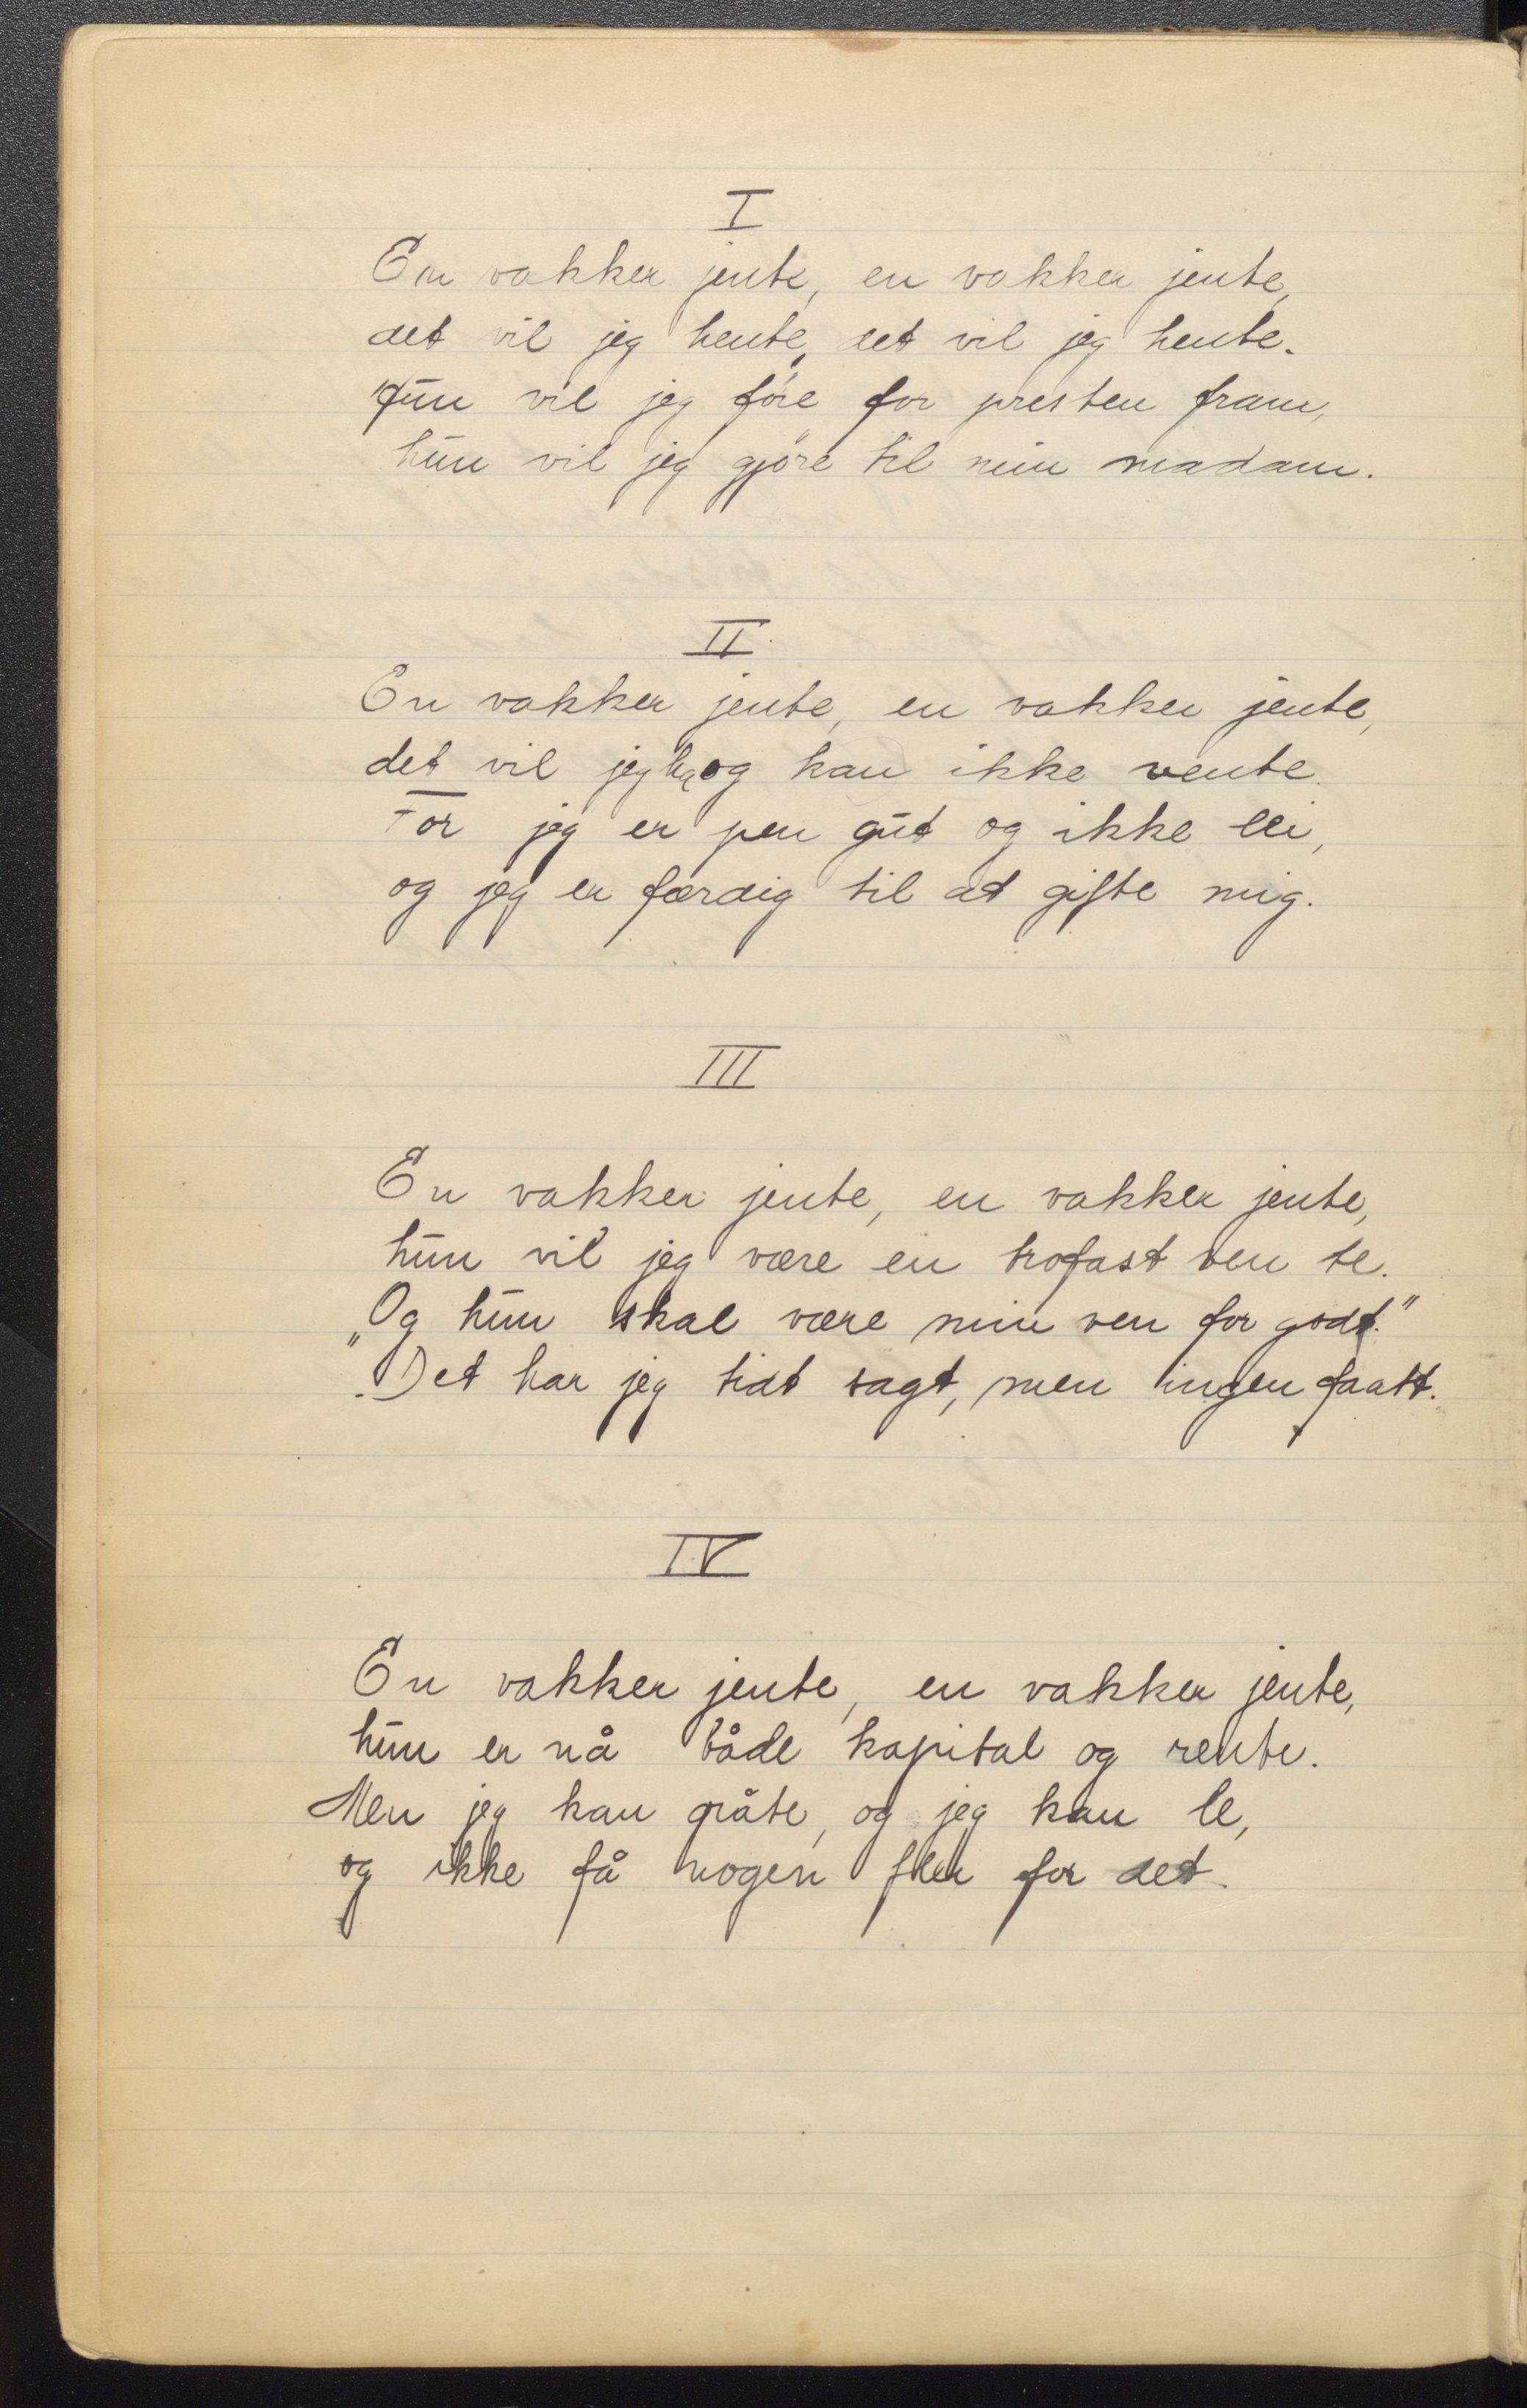 I
En vakker jente, en vakker jente,
det vil jeg hente, det vil jeg hente.
Hun vil jeg føre for presten fram,
hun vil jeg gjøre til min madam.
II
En vakker jente, en vakker jente,
det vil jeg ha og kan ikke vente.
For jeg er pen gut og ikke lei,
og jeg er færdig til at gifte mig.
III
En vakker jente, en vakker jente,
hun vil jeg være en trofast ven te.
„Og hun skal være min ven for godt."
Det har jeg tidt sagt, men ingen faatt.
IV
En vakker jente, en vakker jente,
hun er nå både kapital og rente.
Men jeg kan gråte, og jeg kan le,
og ikke få nogen fler for det.